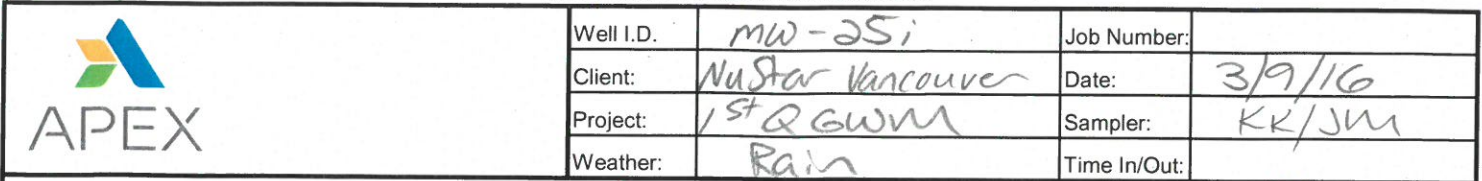 Well I.D. MW-25i Job Number:
Client: NuStar Vancouver Date: 3/9/16
APEX Project: 1st Q GWM Sampler: KK/JM
Weather: Rain Time In/Out: